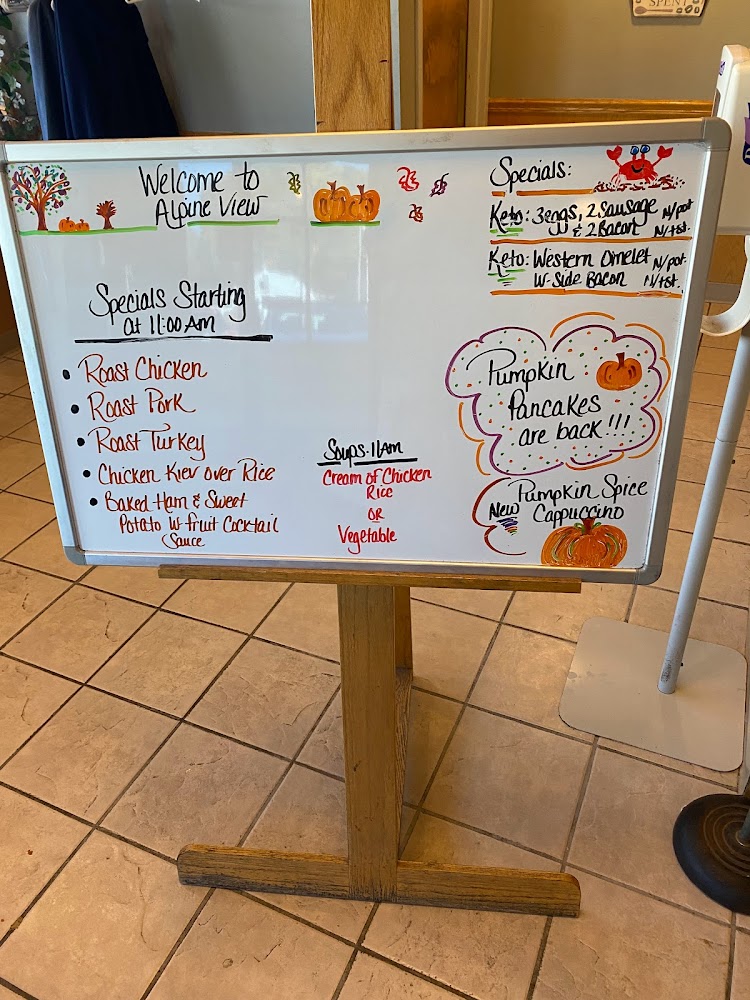 SPENT
Welcome to
Alpine View
Specials Starting
at 11:00 Am
• Roast Chicken
• Roast Pork
• Roast Turkey
• Chicken Kiev over Rice
• Baked Ham & Sweet
Potato W fruit Cocktail
Sauce
Soups-11Am
Cream of Chicken
Rice
OR
Vegetable
Specials:
Keto: 3eggs, 2 Sausage N/pot
& 2 Bacon N/tst.
Keto: Western Omelet N/pot.
W-Side Bacon N/tst.
Pumpkin
Pancakes
are back!!!
New Pumpkin Spice
Cappuccino